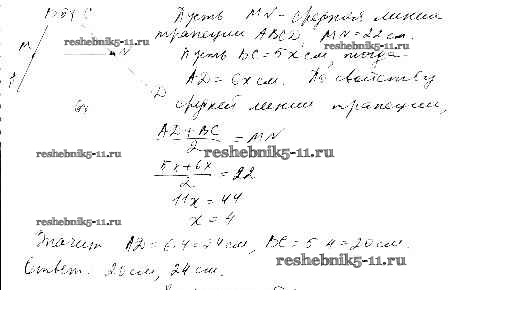 Пусть MN - средняя линия
трапеции ABCD, MN = 22 см.
Пусть BC = 5x см, тогда
AD = 6x см. По свойству
средней линии трапеции,
M
N
D
reshebnik5-11.ru
AD + BC / 2 = MN
reshebnik5-11.ru
reshebnik5-11.ru
5x + 6x / 2 = 22
11x = 44
reshebnik5-11.ru
x = 4
Значит AD = 6·4 = 24 см, BC = 5·4 = 20 см.
reshebnik5-11.ru
Ответ. 20 см, 24 см.